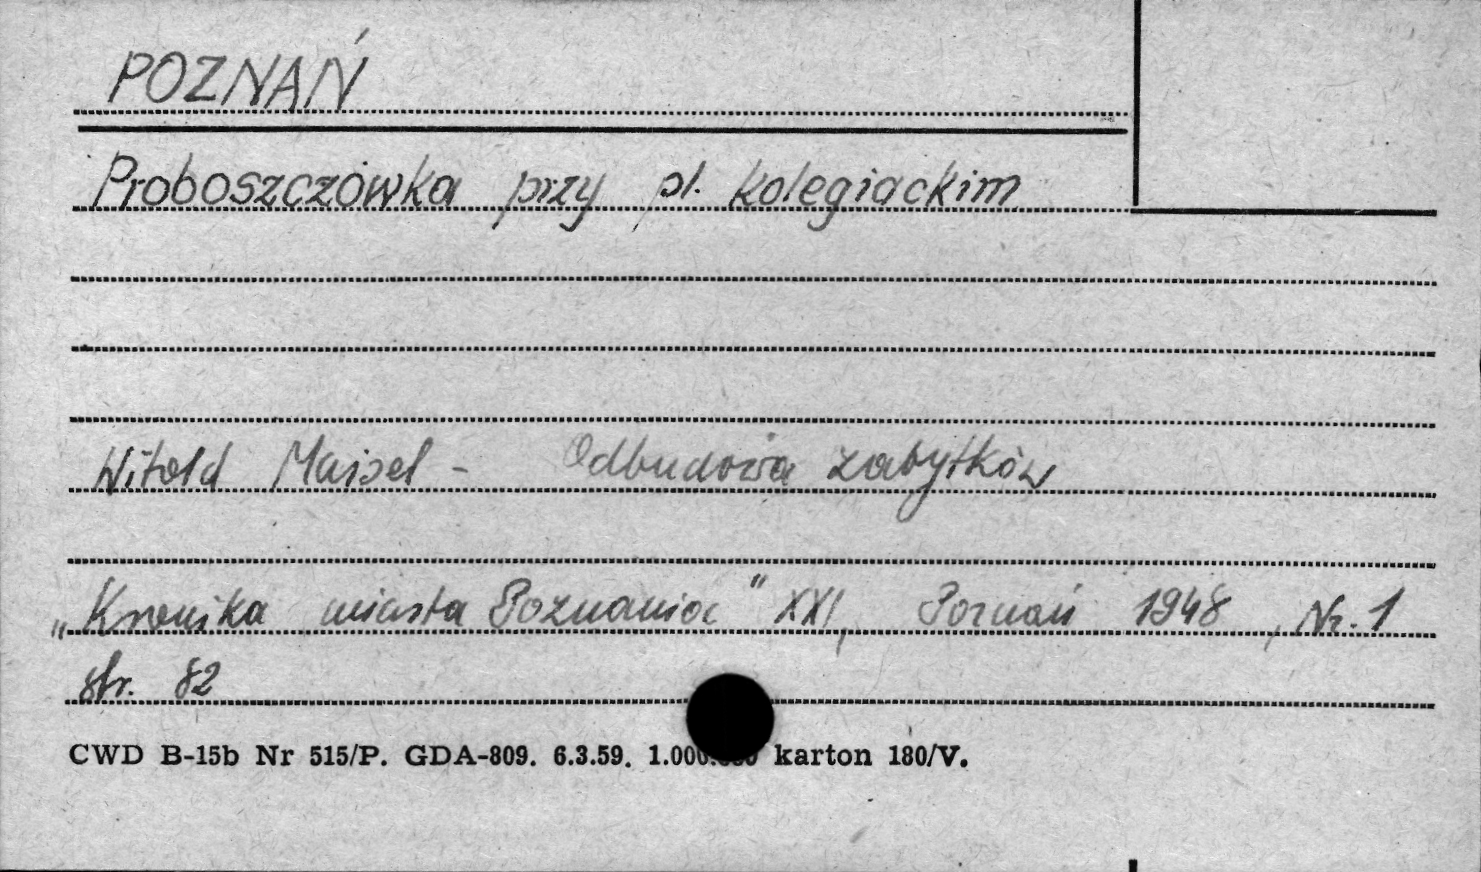 POZNAŃ
Proboszczówka przy pl. kolegiackim
Witold Maisel - Odbudowa zabytków
„Kronika miasta Poznania" XXI, Poznań 1948, Nr. 1
str. 82
CWD B-15b Nr 515/P. GDA-809. 6.3.59. 1.000.000 karton 180/V.